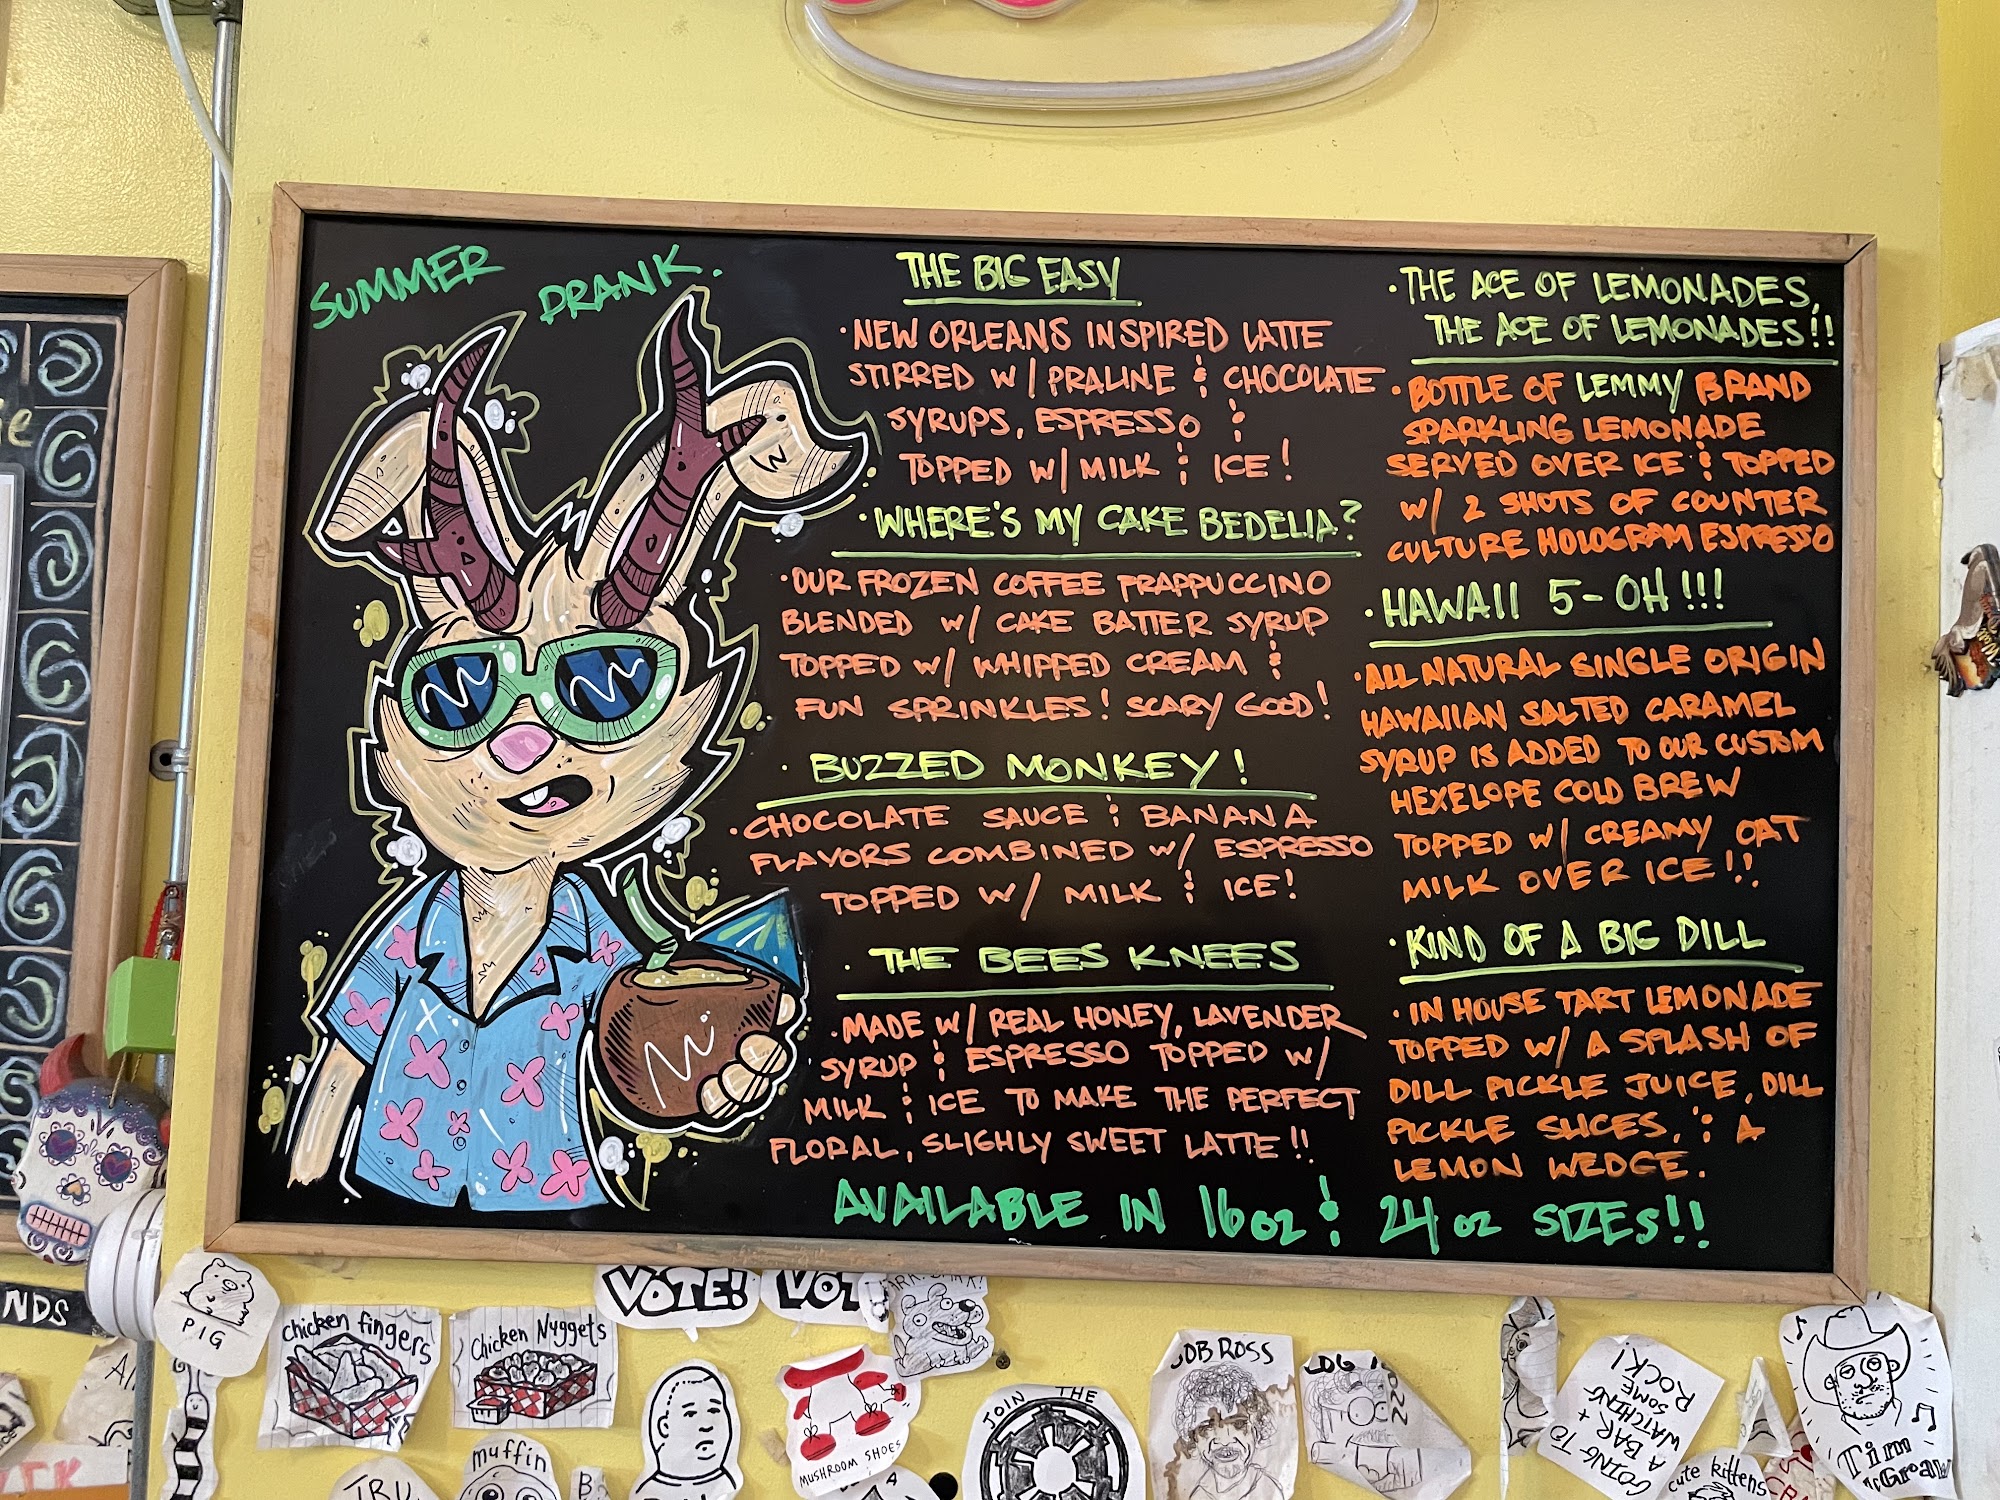 SUMMER DRANK.
THE BIG EASY
· NEW ORLEANS INSPIRED LATTE
STIRRED W/ PRALINE & CHOCOLATE
SYRUPS, ESPRESSO &
TOPPED W/ MILK & ICE!
· WHERE'S MY CAKE BEDELIA?
· OUR FROZEN COFFEE FRAPPUCCINO
BLENDED W/ CAKE BATTER SYRUP
TOPPED W/ WHIPPED CREAM &
FUN SPRINKLES! SCARY GOOD!
· BUZZED MONKEY!
· CHOCOLATE SAUCE & BANANA
FLAVORS COMBINED W/ ESPRESSO
TOPPED W/ MILK & ICE!
· THE BEES KNEES
· MADE W/ REAL HONEY, LAVENDER
SYRUP & ESPRESSO TOPPED W/
MILK & ICE TO MAKE THE PERFECT
FLORAL, SLIGHLY SWEET LATTE!!
· THE ACE OF LEMONADES,
THE ACE OF LEMONADES!!
· BOTTLE OF LEMMY BRAND
SPARKLING LEMONADE
SERVED OVER ICE & TOPPED
W/ 2 SHOTS OF COUNTER
CULTURE HOLOGRAM ESPRESSO
· HAWAII 5-OH!!!
· ALL NATURAL SINGLE ORIGIN
HAWAIIAN SALTED CARAMEL
SYRUP IS ADDED TO OUR CUSTOM
HEXELOPE COLD BREW
TOPPED W/ CREAMY OAT
MILK OVER ICE!!
· KIND OF A BIG DILL
· IN HOUSE TART LEMONADE
TOPPED W/ A SPLASH OF
DILL PICKLE JUICE, DILL
PICKLE SLICES, & A
LEMON WEDGE.
AVAILABLE IN 16 OZ & 24 OZ SIZES!!
NDS
PIG
chicken fingers
Chicken Nuggets
VOTE!
VOT
muffin
MUSHROOM SHOES
JOIN THE
BOB ROSS
GOING TO
A BAR +
WATCHING
SOME
ROCK!
cute kittens
Tim
McGraw